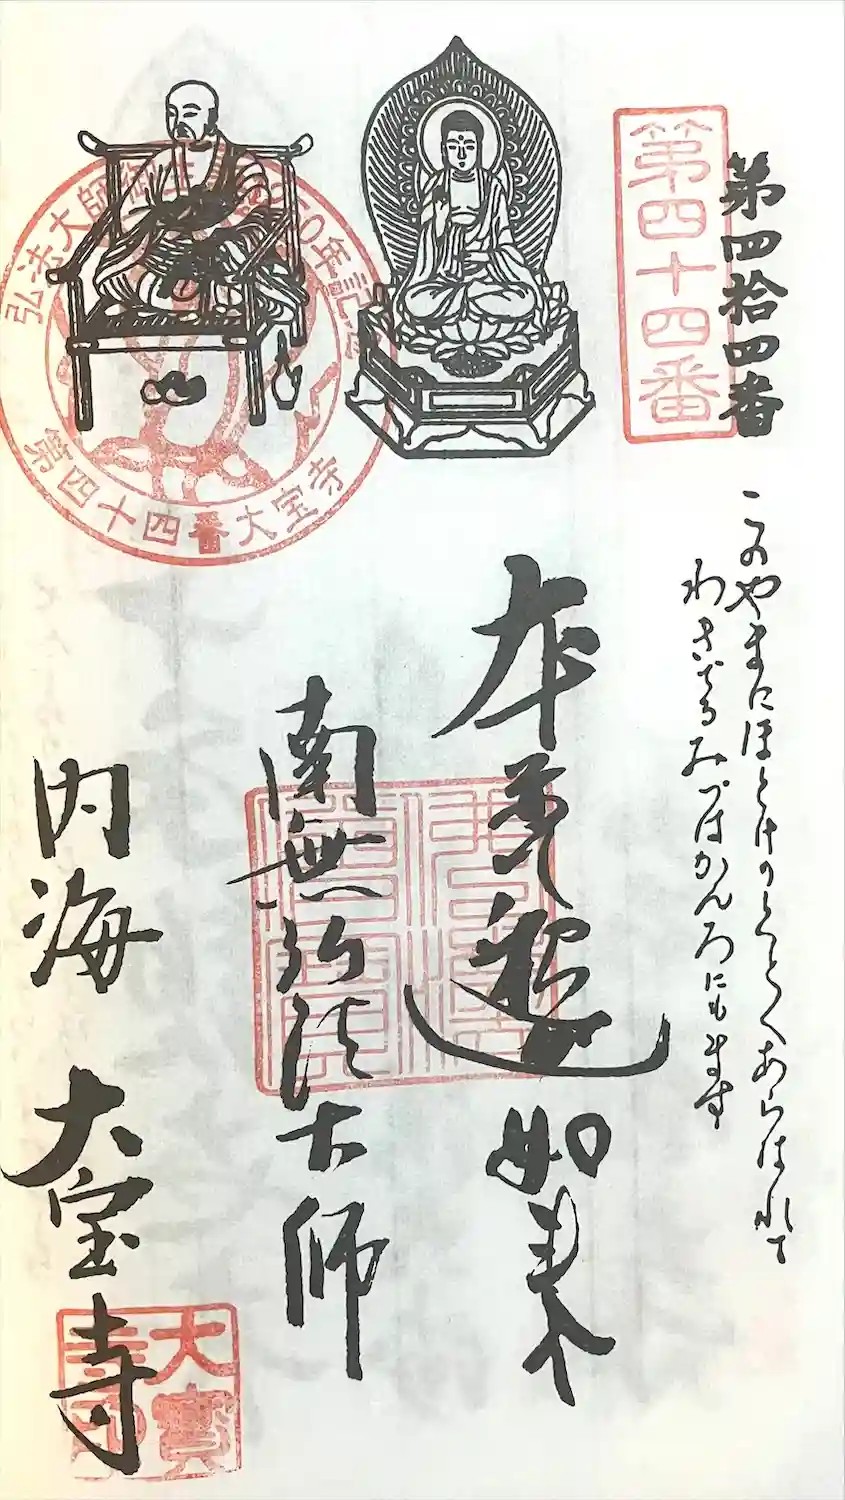 第四拾四番
第四十四番
このやまにほとけのくとくあらはれて
わきでるみづはかんろにもます
本尊釈迦如来
南無弘法大師
弘法大師 年記念
第四十四番大宝寺
内海 大宝寺
大寶寺印